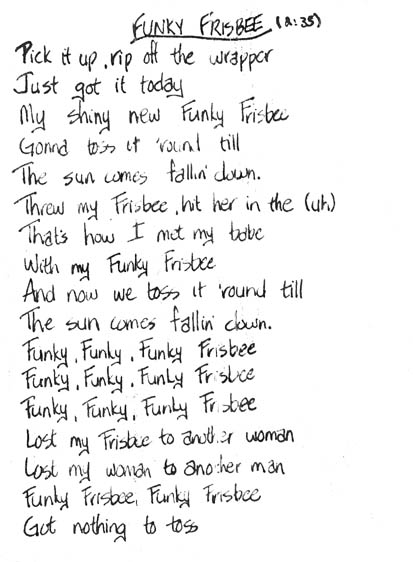 FUNKY FRISBEE (2:35)
Pick it up, rip off the wrapper
Just got it today
My shiny new Funky Frisbee
Gonna toss it 'round till
The sun comes fallin' down.
Threw my Frisbee, hit her in the (uh)
That's how I met my babe
With my Funky Frisbee
And now we toss it 'round till
The sun comes fallin' down.
Funky, Funky, Funky Frisbee
Funky, Funky, Funky Frisbee
Funky, Funky, Funky Frisbee
Lost my Frisbee to another woman
Lost my woman to another man
Funky Frisbee, Funky Frisbee
Got nothing to toss